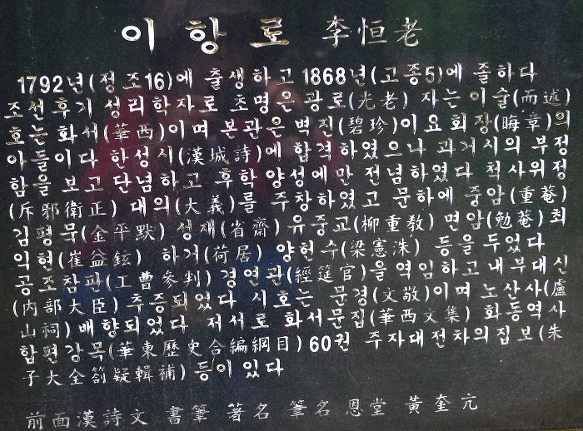 이 항 로 李恒老
1792년(정조16)에 출생하고 1868년(고종5)에 졸하다
조선후기 성리학자로 초명은 광로(光老) 자는 이술(而述)
호는 화서(華西)이며 본관은 벽진(碧珍)이요 회장(晦章)의
아들이다 한성시(漢城詩)에 합격하였으나 과거시의 부정
함을 보고 단념하고 후학 양성에만 전념하였다 척사위정
(斥邪衛正) 대의(大義)를 주창하였고 문하에 중암(重菴)
김평묵(金平默) 성재(省齋) 유중교(柳重敎) 면암(勉菴) 최
익현(崔益鉉) 하거(荷居) 양헌수(梁憲洙) 등을 두었다
공조참판(工曹參判) 경연관(經筵官)을 역임하고 내부대신
(內部大臣) 추증되었다 시호는 문경(文敬)이며 노산사(盧
山祠) 배향되었다 저서로 화서문집(華西文集) 화동역사
합편강목(華東歷史合編綱目) 60권 주자대전차의집보(朱
子大全箚疑輯補) 등이 있다
前面漢詩文 書筆 著名 筆名恩堂 黃奎亢